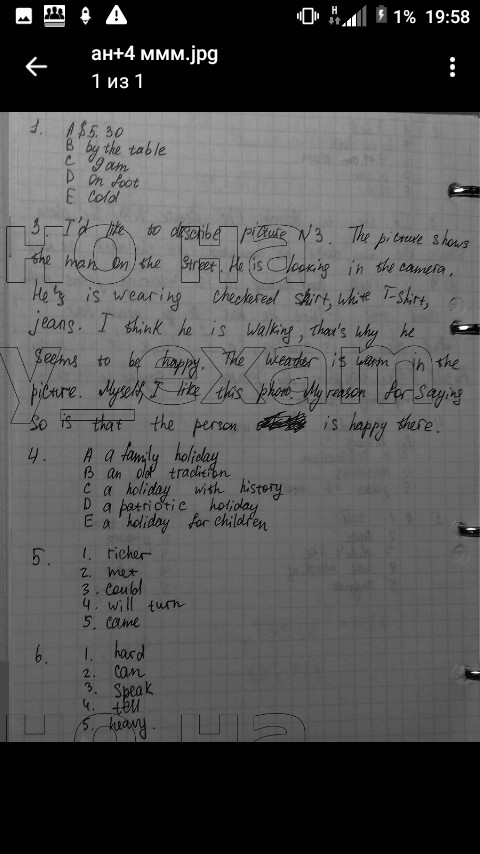 H
1% 19:58
ан+4 ммм.jpg
1 из 1
1. A $5.30
B by the table
C 9am
D On foot
E Cold
3. I'd like to describe picture N3. The picture shows
the man on the street. He is looking in the camera.
He's is wearing checkered shirt, white T-Shirt,
jeans. I think he is walking, that's why he
seems to be happy. The weather is warm in the
picture. Myself, I like this photo. My reason for saying
so is that the person is happy there.
4. A a family holiday
B an old tradition
C a holiday with history
D a patriotic holiday
E a holiday for children
5. 1. richer
2. met
3. could
4. will turn
5. came
6. 1. hard
2. can
3. Speak
4. tell
5. heavy.
но на
у exam
но на